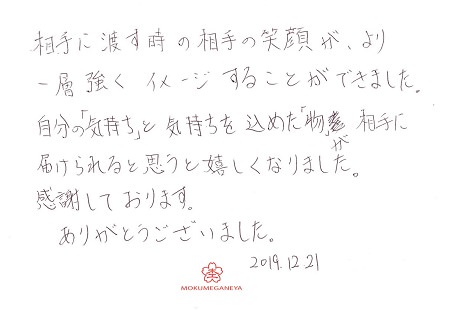 相手に渡す時の相手の笑顔が、より
一層強くイメージすることができました。
自分の「気持ち」と気持ちを込めた「物」が相手に
届けられると思うと嬉しくなりました。
感謝しております。
ありがとうございました。
2019.12.21
MOKUMEGANEYA